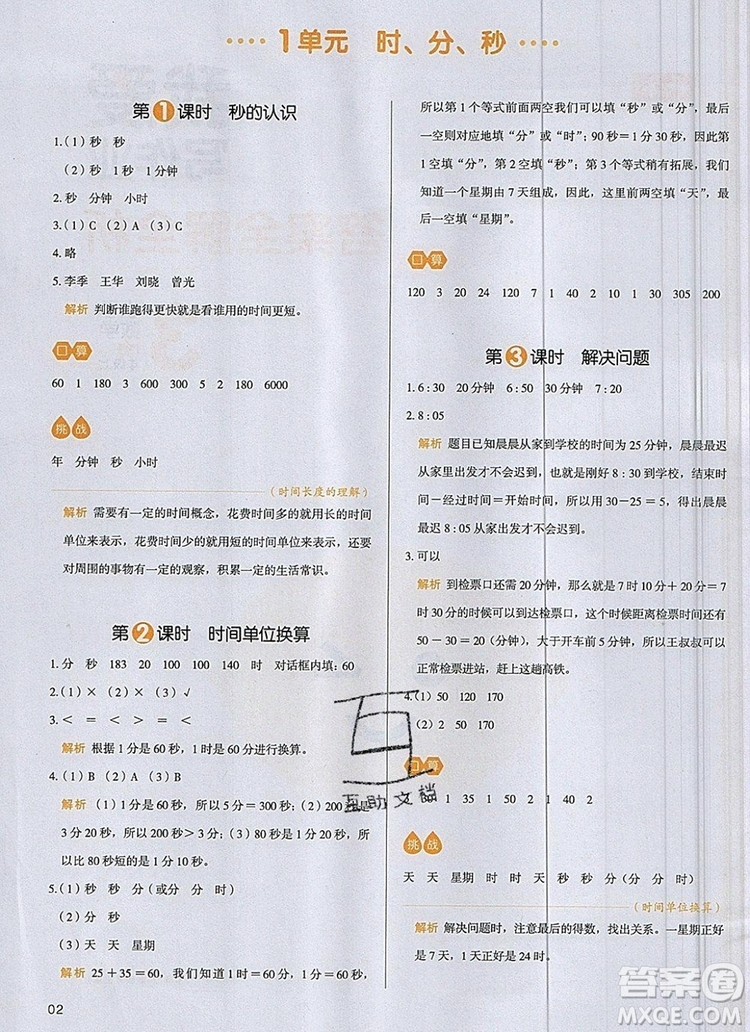 1单元 时、分、秒
第1课时 秒的认识
1.(1)秒 秒
(2)秒 1秒 1分钟
2.秒 分钟 小时
3.(1)C (2)A (3)C
4.略
5.李季 王华 刘晓 曾光
解析 判断谁跑得更快就是看谁用的时间更短。
口算
60 1 180 3 600 5 300 6 2400 9 3000
挑战
年 分钟 秒 小时
(时间长度的理解)
解析 需要有一定的时间概念，花费时间多的就用长的时间
单位来表示，花费时间少的就用短的时间单位来表示，
对周围的事物有一定的观察，积累一定的生活常识。
第2课时 时间单位换算
1.分 秒 183 20 100 100 140 时 对话框内填:60
2.(1)× (2)× (3)√
3.< = < > = <
解析 根据1分是60秒，1时是60分进行换算。
4.(1)B (2)A (3)B
解析 (1)1分是60秒，所以5分=300秒;(2)200秒是
3分20秒，所以200秒>3分;(3)80秒是1分20秒，所
以比80秒短的是1分10秒。
5.(1)秒 秒 分(或分 分 时)
(2)分 秒
(3)天 天 星期
解析 25+35=60，我们知道1分=60秒，1时=60分，
02
所以第1个等式前面两空我们可以填“秒”或“分”，最后
一空则对应地填“分”或“时”;90秒=1分30秒，因此第
1空填“分”，第2空填“秒”。第3个等式稍有拓展，我们
知道一个星期由7天组成，因此，这里前两空填“天”，最
后一空填“星期”。
口算
120 3 20 24 110 5 120 1 30 305 200
第3课时 解决问题
1.6:30 20分钟 6:50 30分钟 7:20
2.8:05
解析 题目已知晨晨从家到学校的时间为25分钟，晨晨最
迟从家里出发才会不迟到，也就是刚好8:30到校，结束时
间-经过时间=开始时间，所以用30-25=5，所以晨晨
最迟8:05从家出发才不会迟到。
3.可以
解析 到检票口还需30分钟，那么就是7时10分+30分
=7时40分，所以王叔叔可以在7:40到达检票口。又因为
50-30=20(分钟)，大于开车前5分钟，所以王叔叔可以
正常检票进站，赶上这趟高铁。
4.(1)50 120 170
(2)2 50 170
口算
1 35 1 50 2 1 40 2
挑战
天 天 星期 时 时 天 秒 秒 分(分 分 时)
(时间单位换算)
解析 解决问题时，注意最后的得数，找出关系。一星期正好
是7天，1天正好是24时。
互助文档
答案圈
MXQE.COM